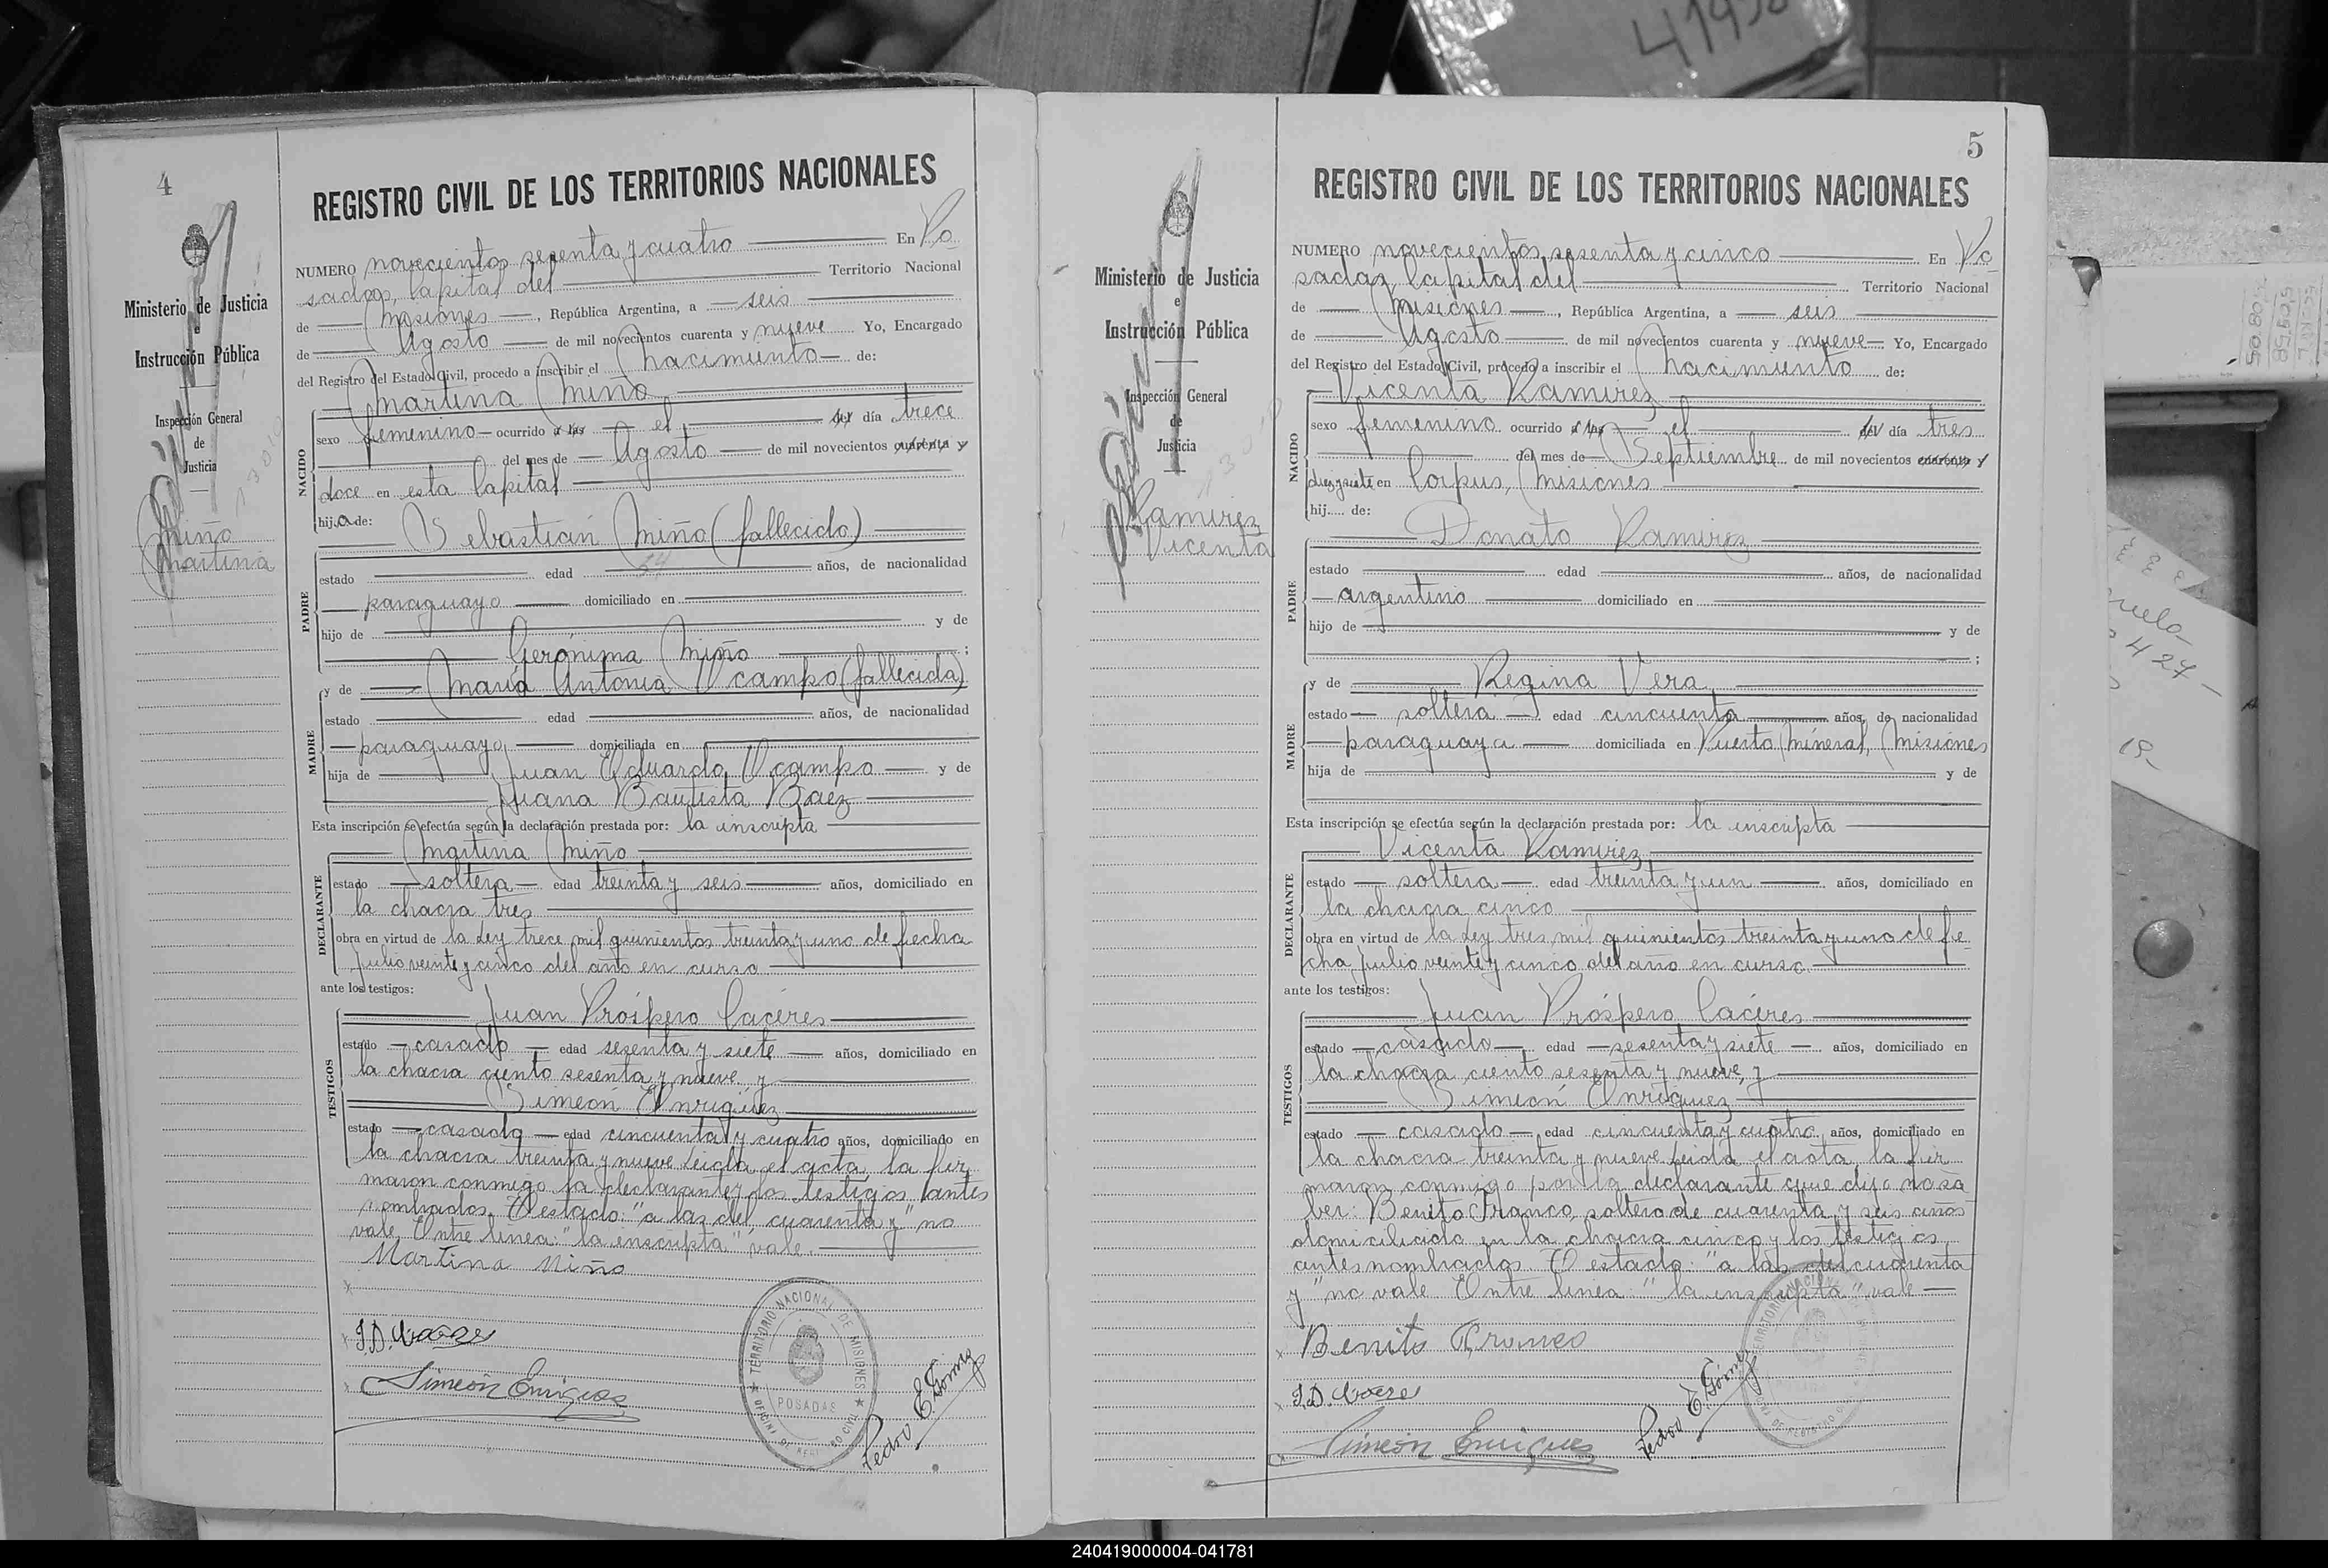 41938
4
REGISTRO CIVIL DE LOS TERRITORIOS NACIONALES
Ministerio de Justicia
e
Instrucción Pública
Inspección General
de
Justicia
Miño
Martina
NUMERO novecientos sesenta y cuatro En Po
sadas, Capital del Territorio Nacional
de Misiones, República Argentina, a seis
de Agosto de mil novecientos cuarenta y nueve Yo, Encargado
del Registro del Estado Civil, procedo a inscribir el nacimiento de:
Martina Miño
NACIDO
sexo femenino ocurrido a las el del día trece
del mes de Agosto de mil novecientos cuarenta y
doce en esta Capital
hija de:
Sebastián Miño (fallecido)
PADRE
estado edad años, de nacionalidad
paraguayo domiciliado en
hijo de y de
Gerónima Miño ;
y de María Antonia Ocampo (fallecida)
MADRE
estado edad años, de nacionalidad
paraguaya domiciliada en
hija de Juan Eduardo Ocampo y de
Juana Bautista Baez
Esta inscripción se efectúa según la declaración prestada por: la inscripta
Martina Miño
DECLARANTE
estado soltera edad treinta y seis años, domiciliado en
la chacra tres
obra en virtud de la Ley trece mil quinientos treinta y uno de fecha
Julio veinte y cinco del año en curso
ante los testigos:
Juan Próspero Cacéres
TESTIGOS
estado casado edad sesenta y siete años, domiciliado en
la chacra ciento sesenta y nueve y
Simeón Enriquez
estado casado edad cincuenta y cuatro años, domiciliado en
la chacra treinta y nueve Leida el acta, la fir
maron conmigo la declarante y los testigos antes
nombrados. Testado: "a las del, cuarenta y" no
vale. Entre linea: "la inscripta" vale.
Martina Miño
Simeón Enriquez
TERRITORIO NACIONAL DE MISIONES
POSADAS
OFICINA DE REGISTRO CIVIL
Pedro E. Gómez
5
REGISTRO CIVIL DE LOS TERRITORIOS NACIONALES
Ministerio de Justicia
e
Instrucción Pública
Inspección General
de
Justicia
Ramirez
Vicenta
NUMERO novecientos sesenta y cinco En Po
sadas, Capital del Territorio Nacional
de Misiones, República Argentina, a seis
de Agosto de mil novecientos cuarenta y nueve Yo, Encargado
del Registro del Estado Civil, procedo a inscribir el nacimiento de:
Vicenta Ramirez
NACIDO
sexo femenino ocurrido a las el del día tres
del mes de Septiembre de mil novecientos cuarenta y
diezysiete en Corpus, Misiones
hij de:
Donato Ramirez
PADRE
estado edad años, de nacionalidad
argentino domiciliado en
hijo de y de
;
y de Regina Vera
MADRE
estado soltera edad cincuenta años, de nacionalidad
paraguaya domiciliada en Puerto Mineral, Misiones
hija de y de
Esta inscripción se efectúa según la declaración prestada por: la inscripta
Vicenta Ramirez
DECLARANTE
estado soltera edad treinta y un años, domiciliado en
la chacra cinco
obra en virtud de la Ley tres mil quinientos treinta y uno de fe
cha Julio veinte y cinco del año en curso
ante los testigos:
Juan Próspero Cacéres
TESTIGOS
estado casado edad sesenta y siete años, domiciliado en
la chacra ciento sesenta y nueve, y
Simeón Enriquez
estado casado edad cincuenta y cuatro años, domiciliado en
la chacra treinta y nueve Leida el acta, la fir
maron conmigo por la declarante que dijo no sa
ber: Benito Franco, soltero de cuarenta y seis años
domiciliado en la chacra cinco y los testigos
antes nombrados Testado: "a las del cuarenta
y" no vale Entre linea: "la inscripta" vale
Benito Franco
Simeón Enriquez
Pedro E. Gómez
240419000004-041781